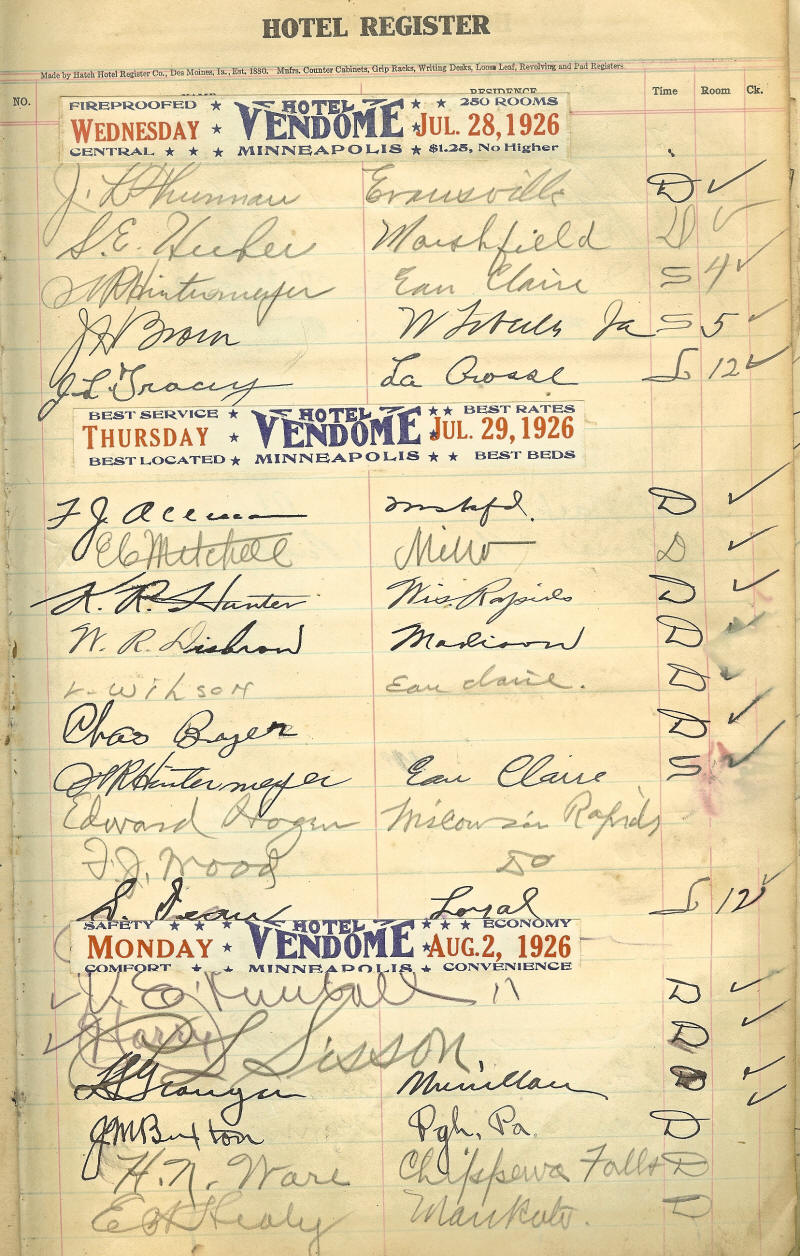 HOTEL REGISTER
Made by Hatch Hotel Register Co., Des Moines, Ia., Est. 1880. Mnfrs. Counter Cabinets, Grip Racks, Writing Desks, Loose Leaf, Revolving and Pad Registers.
NO. NAME RESIDENCE Time Room Ck.
FIREPROOFED ★ HOTEL ★ ★ 250 ROOMS
WEDNESDAY ★ VENDOME ★ JUL. 28, 1926
CENTRAL ★ ★ ★ MINNEAPOLIS ★ $1.25, No Higher
J. L. Thurman Evansville D ✓
S. E. Huber Marshfield D ✓
Hintermeyer Eau Claire S 4 ✓
J H Brown W Ia S 5 ✓
J. L. Tracey La Crosse L 12 ✓
BEST SERVICE ★ HOTEL ★★ BEST RATES
THURSDAY ★ VENDOME ★ JUL. 29, 1926
BEST LOCATED ★ MINNEAPOLIS ★ ★ BEST BEDS
F. J. mshfd. D ✓
E C Mitchell D ✓
K. R. Hunter Wis. Rapids D ✓
W. R. Disbrow Madison D ✓
Wilson Eau claire. D ✓
Chas D ✓
Hintermeyer Eau Claire S ✓
Edward Hogen Wisconsin Rapids
F. J. Wood Do
S. Dean Loyal L 12 ✓
SAFETY ★ ★ ★ HOTEL ★ ★ ★ ECONOMY
MONDAY ★ VENDOME ★ AUG. 2, 1926
COMFORT ★ ★ MINNEAPOLIS ★ CONVENIENCE
✓ E. Kimball 11 D ✓
✓ Harry L Sisson D ✓
Granger Merrillan D ✓
J M Buxton Pgh, Pa. D ✓
H. N. Ware Chippewa Falls D
E H Healy Mankato. D